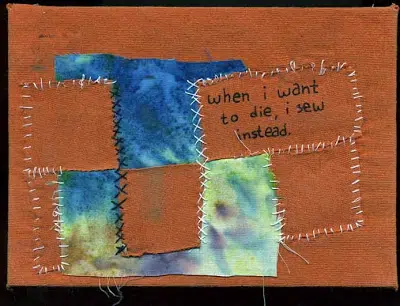 when i want
to die, i sew
instead.